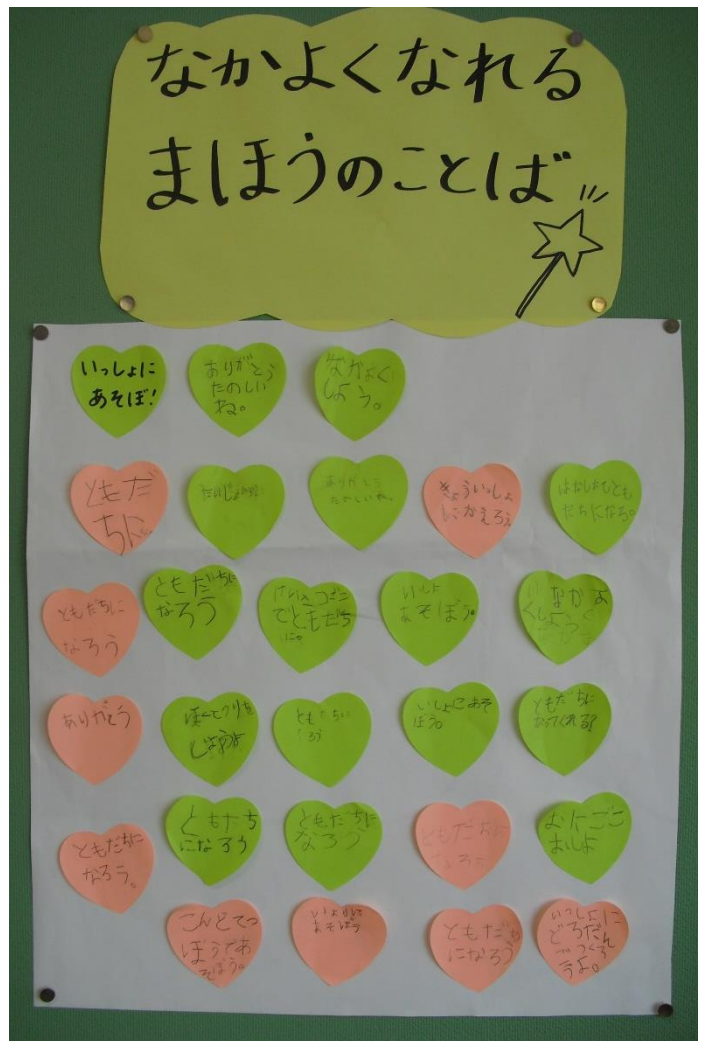 なかよくなれる
まほうのことば
いっしょに
あそぼ!
ありがとう
たのしい
ね。
なかよく
しよう。
ともだ
ちに
ありがとう
たのしいね。
きょういっしょ
にかえろう
ともだちに
なろう
ともだちに
なろう
でともだち
に。
いしょ
あそぼう。
なかよ
くしよう
ありがとう
ぼくとつりを
ともだちに
なろう
いしょにあそ
ぼう。
ともだちに
なってくれる?
ともだちに
なろう。
ともだち
になろう
ともだちに
なろう
ともだちに
なろう
おにごこ
おしよ
こんどてつ
ぼうであ
そぼう。
あそぼう
ともだち
になろう
いっしょに
どろだん
つくろ
うよ。